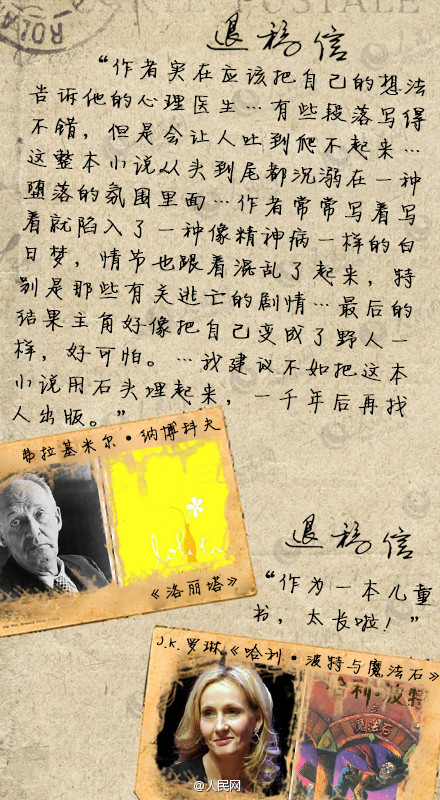 退稿信
“作者实在应该把自己的想法
告诉他的心理医生…有些段落写得
不错，但是会让人吐到爬不起来…
这整本小说从头到尾都沉溺在一种
堕落的氛围里面…作者常常写着写
着就陷入了一种像精神病一样的白
日梦，情节也跟着混乱了起来，特
别是那些有关逃亡的剧情…最后的
结果主角好像把自己变成了野人一
样，好可怕。…我建议不如把这本
小说用石头埋起来，一千年后再找
人出版。”
弗拉基米尔·纳博科夫
lolita
《洛丽塔》
退稿信
“作为一本儿童
书，太长啦！”
J.K.罗琳《哈利·波特与魔法石》
哈利·波特
与
魔法石
@人民网